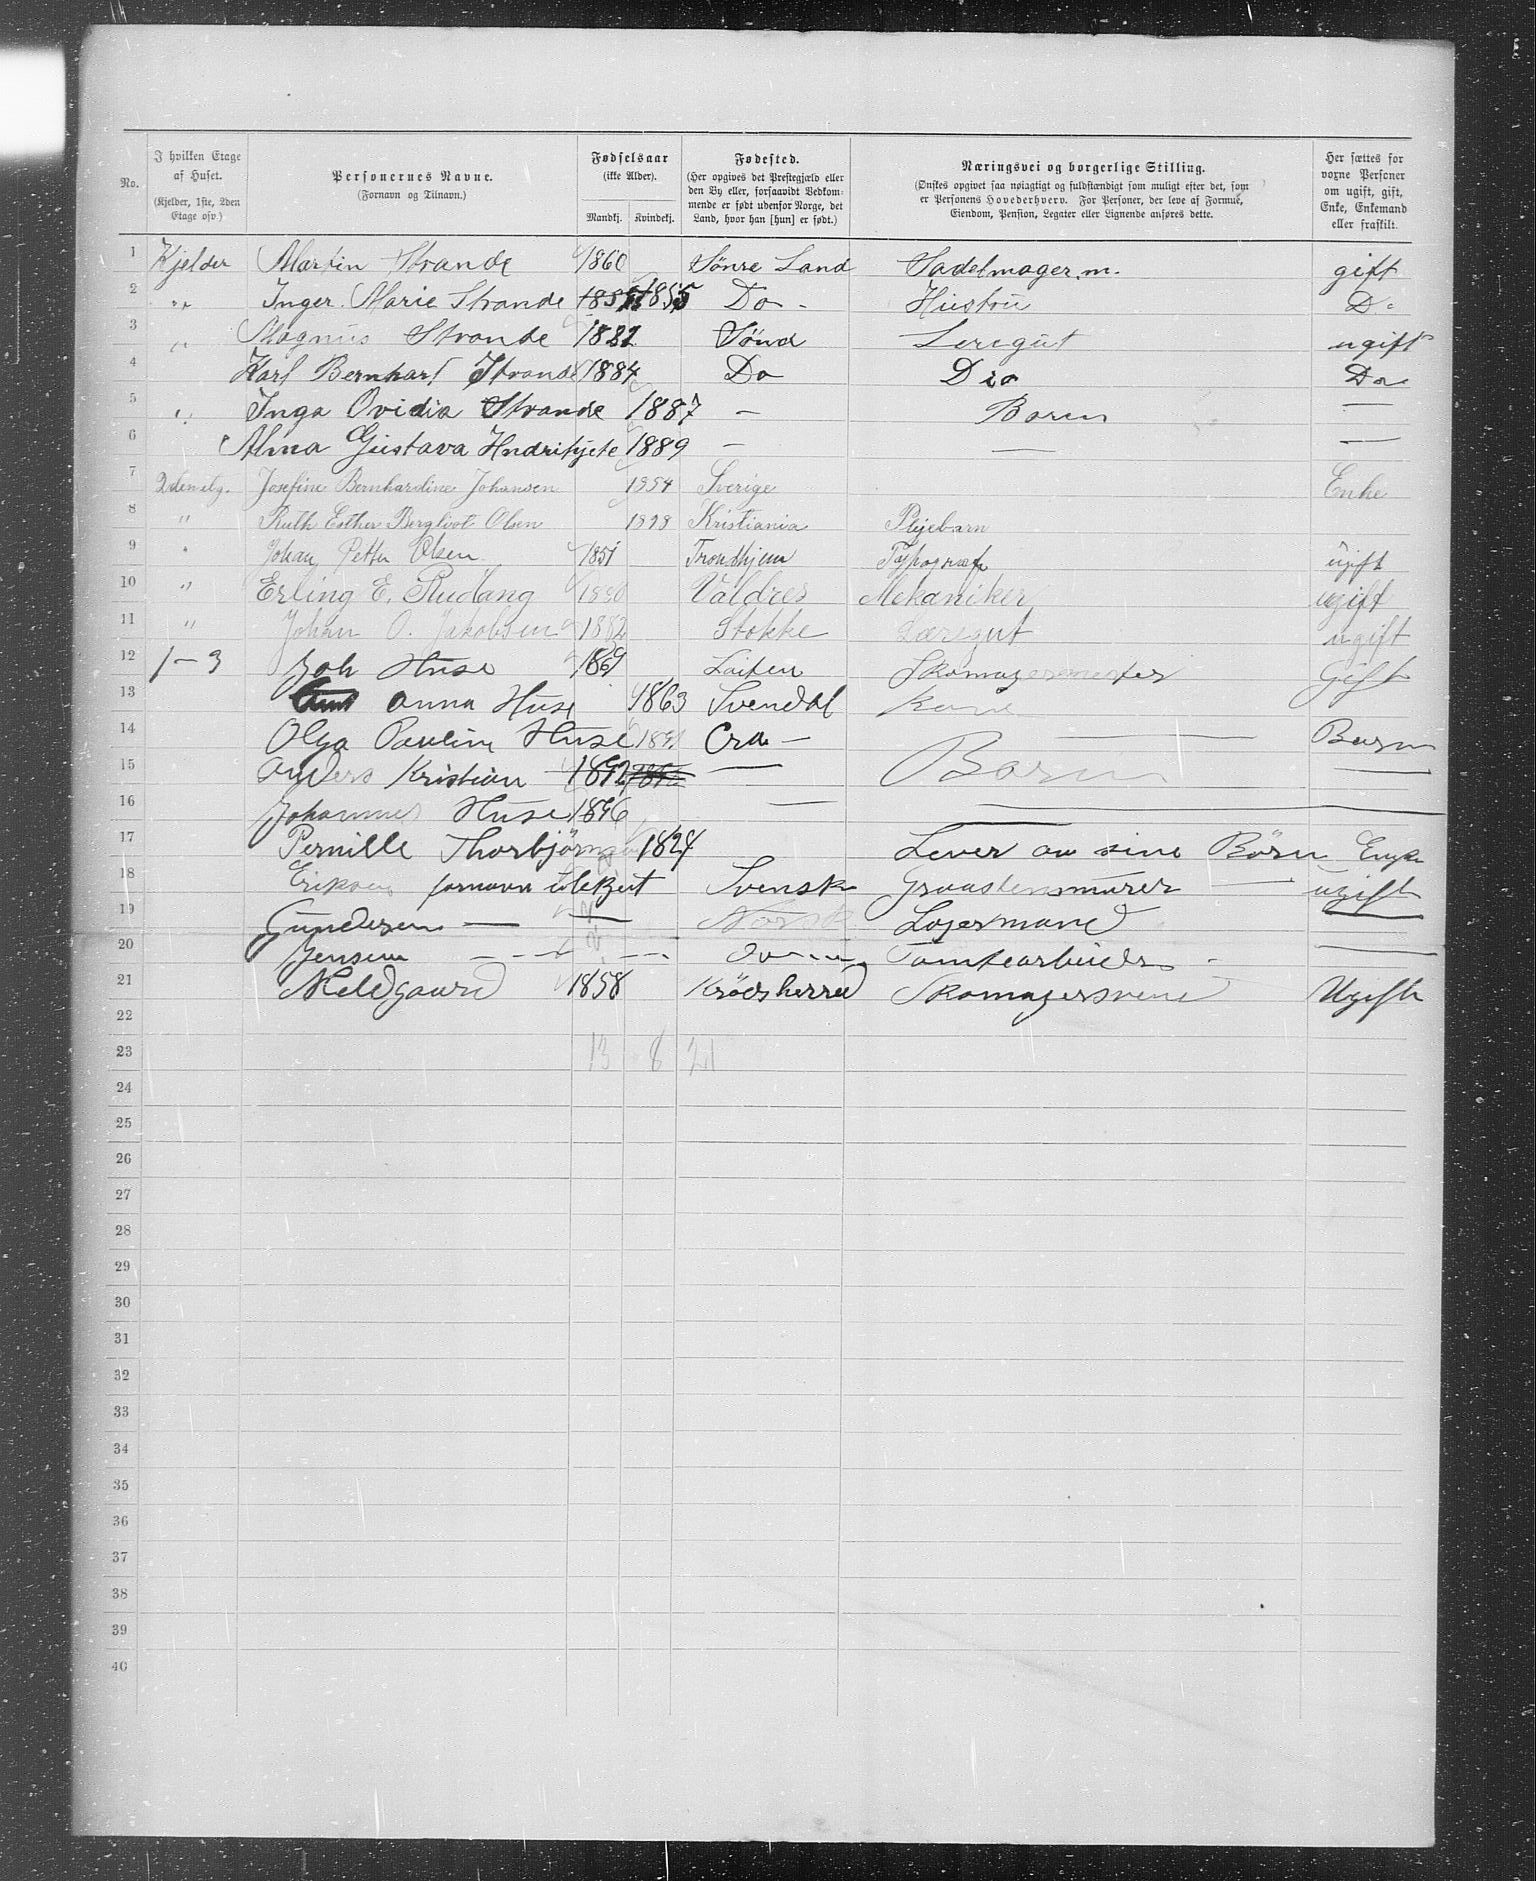 No. | I hvilken Etage af Huset. (Kjelder, 1ste, 2den Etage osv.) | Personernes Navne. (Fornavn og Tilnavn.) | Fødselsaar (ikke Alder). Mandkj. | Kvindekj. | Fødested. (Her opgives det Prestegjæld eller den By eller, forsaavidt Vedkommende er født udenfor Norge, det Land, hvor han [hun] er født.) | Næringsvei og borgerlige Stilling. (Ønskes opgivet saa nøiagtigt og fuldstændigt som muligt efter det, som er Personens Hovederhverv. For Personer, der leve af Formue, Eiendom, Pension, Legater eller Lignende anføres dette. | Her sættes for voxne Personer om ugift, gift, Enke, Enkemand eller fraskilt.
1 Kjelder Martin Strande 1860 Sønre Land Sadelmager m. gift
2 " Inger Marie Strande 1855 Do - Hustru D-
3 " Magnus Strande 1882 Sønd Leregut ugift
4 Karl Bernhart Strande 1884 Do Dio Do
5 " Inga Ovidia Strande 1887 — Barn —
6 Alma Gustava 1889 — — —
7 2den etg. Josefine Bernhardine Johansen 1854 Sverige Enke
8 " Ruth Esther Bergliot Olsen 1898 Kristiania Plejebarn
9 " Johan Petter Olsen 1851 Trondhjem Typograf ugift
10 " Erling E. Rudang 1880 Valdres Mekaniker ugift
11 " Johan O. Jakobsen 1882 Stokke Læregut ugift
12 1-3 Joh Huse 1869 Loiten Skomagermester Gift
13 Anna Huse 1863 Svendal Kone
14 Olga Pauline Huse 1891 Cra — — Barn
15 Anders Kristian 1892 — Barn —
16 Johannes Huse 1896 — — —
17 Pernille Thorbjørnsen 1824 Lever av sine Børn Enke
18 Eriksen fornavn ubekjent Svensk Graastensmurer — ugift
19 Gundersen — — Norsk Logermand —
20 Jensen - - - - - Do Tomtearbeider - —
21 Meldgaard 1858 Krødsherred Skomagersvend Ugift
22
23 13 8 21
24
25
26
27
28
29
30
31
32
33
34
35
36
37
38
39
40